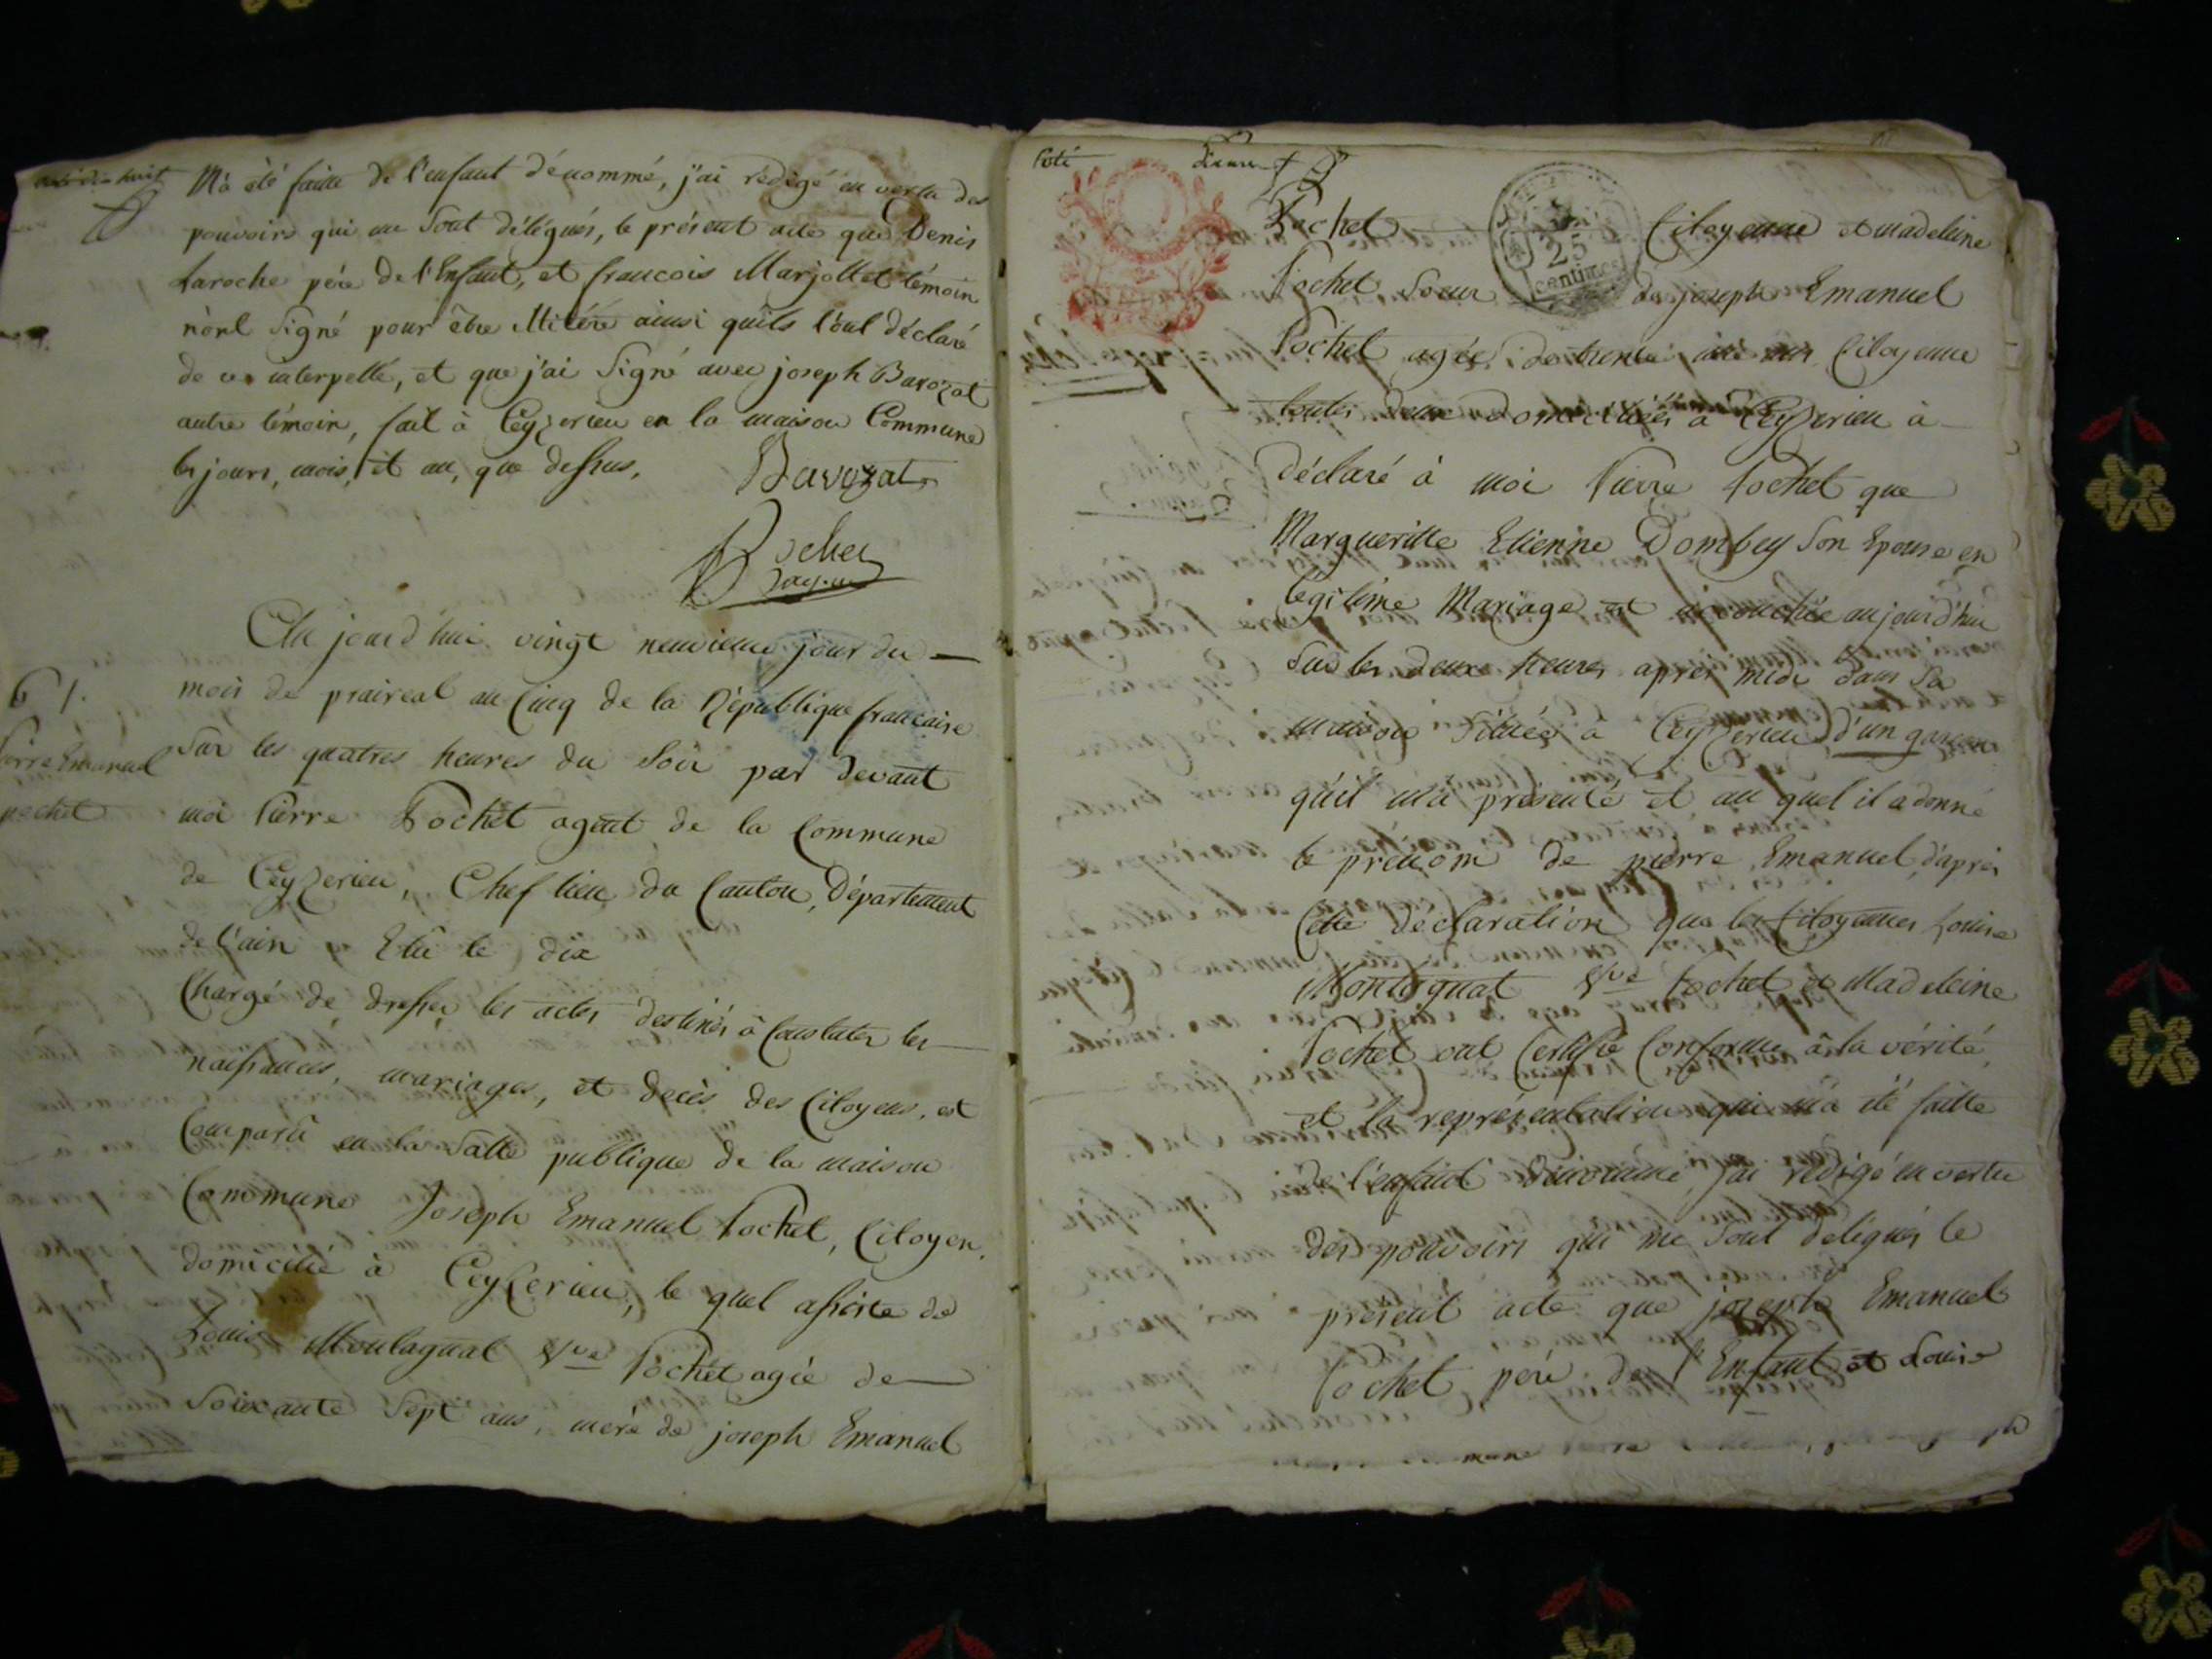 coté dix huit
M'a été faitte de l'enfant dénommé, j'ai rédigé en vertu des
pouvoirs qui me Sont délégués, le présent acte que Denis
Laroche pére de l'Enfant, et francois Marjollet témoin
n'ont Signé pour être illitéré ainsi quils l'ont déclaré
de ce interpellé, et que j'ai Signé avec joseph Barozat
autre témoin, fait à Ceyzerieu en la maison Commune
les jours, mois, et an, que dessus,
Barozat
Pochet
agent
Au jourd'hui vingt neuvieme jour du
mois de praireal an Cinq de la République francaise
Sur les quatres heures du Soir par devant
moi Pierre Pochet agent de la Commune
de Ceyzerieu, Chef lieu du Canton, Département
de l'ain, Elû le dix
Chargé de dresser les actes destinés à Constater les
naissances, mariages, et decès des Citoyens, est
Comparû en la Salle publique de la maison
Commune Joseph Emanuel Pochet, Citoyen,
domicilié à Ceyzerieu, le quel assisté de
Louise Montagnat Vve Pochet agée de
Soixante Sept ans, mere de joseph Emanuel
61.
Pierre Emanuel
pochet
Coté
25
centimes
Pochet Citoyenne et madeleine
Pochet Soeur de joseph Emanuel
Pochet agée de trente ans Citoyenne
toutes deux domiciliées à Ceyzerieu à
déclaré à moi Pierre Pochet que
Margueritte Etienne Dombey Son Epouse en
légitime Mariage est accouchée aujourd'hui
Sur les deux heures après midi dans Sa
maison Située à Ceyzerieu d'un garcon
qu'il m'a présenté et au quel il a donné
le prenom de pierre Emanuel, d'après
Cette déclaration que les Citoyennes Louise
Montagnat Vve Pochet et Madeleine
Pochet ont Certifié Conforme à la vérité
et la représentation qui m'a été faitte
de l'enfant dénommé j'ai rédigé en vertu
des pouvoirs qui me Sont délégués le
présent acte que joseph Emanuel
Pochet père de l'Enfant et Louise